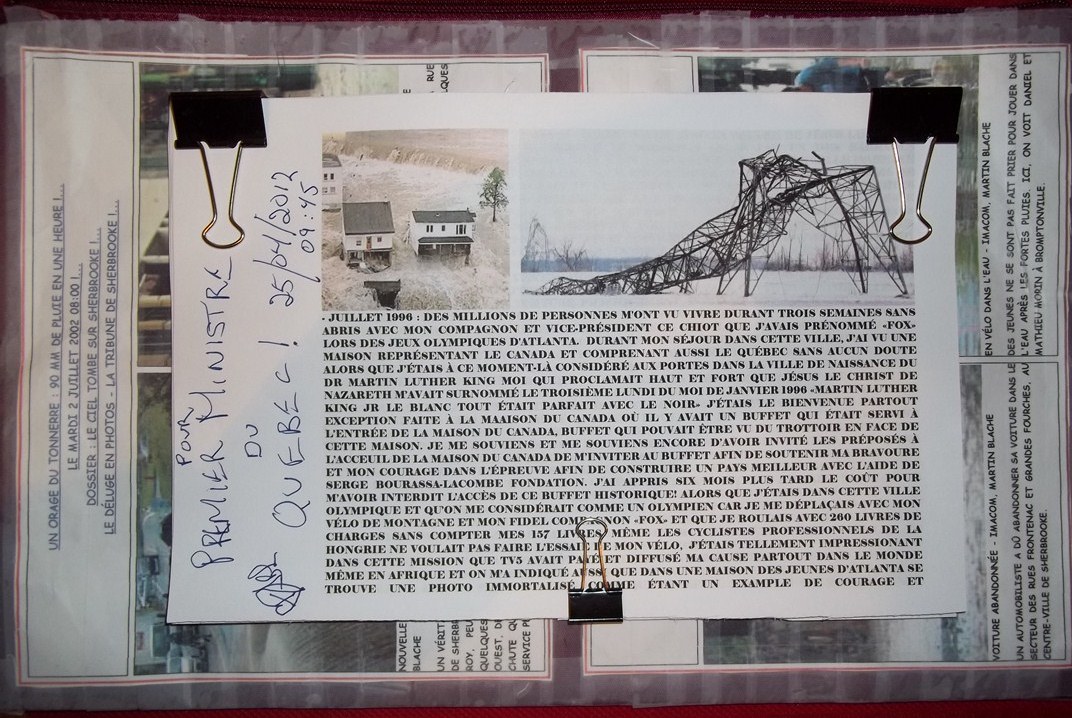 UN ORAGE DU TONNERRE : 90 MM DE PLUIE EN UNE HEURE !...
LE MARDI 2 JUILLET 2002 08:00 !...
DOSSIER : LE CIEL TOMBE SUR SHERBROOKE !...
LE DÉLUGE EN PHOTOS - LA TRIBUNE DE SHERBROOKE !...
POUR
PREMIER MINISTRE
DU
QUEBEC !
25/04/2012
09:45
- JUILLET 1996 : DES MILLIONS DE PERSONNES M'ONT VU VIVRE DURANT TROIS SEMAINES SANS
ABRIS AVEC MON COMPAGNON ET VICE-PRÉSIDENT CE CHIOT QUE J'AVAIS PRÉNOMMÉ «FOX»
LORS DES JEUX OLYMPIQUES D'ATLANTA. DURANT MON SÉJOUR DANS CETTE VILLE, J'AI VU UNE
MAISON REPRÉSENTANT LE CANADA ET COMPRENANT AUSSI LE QUÉBEC SANS AUCUN DOUTE
ALORS QUE J'ÉTAIS À CE MOMENT-LÀ CONSIDÉRÉ AUX PORTES DANS LA VILLE DE NAISSANCE DU
DR MARTIN LUTHER KING MOI QUI PROCLAMAIT HAUT ET FORT QUE JÉSUS LE CHRIST DE
NAZARETH M'AVAIT SURNOMMÉ LE TROISIÈME LUNDI DU MOI DE JANVIER 1996 «MARTIN LUTHER
KING JR LE BLANC TOUT ÉTAIT PARFAIT AVEC LE NOIR» J'ÉTAIS LE BIENVENUE PARTOUT
EXCEPTION FAITE À LA MAAISON DU CANADA OÙ IL Y AVAIT UN BUFFET QUI ÉTAIT SERVI À
L'ENTRÉE DE LA MAISON DU CANADA, BUFFET QUI POUVAIT ÊTRE VU DU TROTTOIR EN FACE DE
CETTE MAISON. JE ME SOUVIENS ET ME SOUVIENS ENCORE D'AVOIR INVITÉ LES PRÉPOSÉS À
L'ACCEUIL DE LA MAISON DU CANADA DE M'INVITER AU BUFFET AFIN DE SOUTENIR MA BRAVOURE
ET MON COURAGE DANS L'ÉPREUVE AFIN DE CONSTRUIRE UN PAYS MEILLEUR AVEC L'AIDE DE
SERGE BOURASSA-LACOMBE FONDATION. J'AI APPRIS SIX MOIS PLUS TARD LE COÛT POUR
M'AVOIR INTERDIT L'ACCÈS DE CE BUFFET HISTORIQUE! ALORS QUE J'ÉTAIS DANS CETTE VILLE
OLYMPIQUE ET QU'ON ME CONSIDÉRAIT COMME UN OLYMPIEN CAR JE ME DÉPLAÇAIS AVEC MON
VÉLO DE MONTAGNE ET MON FIDEL «FOX» ET QUE JE ROULAIS AVEC 260 LIVRES DE
CHARGES SANS COMPTER MES 157 LIVRES MÊME LES CYCLISTES PROFESSIONNELS DE LA
HONGRIE NE VOULAIT PAS FAIRE L'ESSAI DE MON VÉLO, J'ÉTAIS TELLEMENT IMPRESSIONANT
DANS CETTE MISSION QUE TV5 AVAIT ET DIFFUSÉ MA CAUSE PARTOUT DANS LE MONDE
MÊME EN AFRIQUE ET ON M'A INDIQUÉ AUSSI QUE DANS UNE MAISON DES JEUNES D'ATLANTA SE
TROUVE UNE PHOTO IMMORTALISÉ COMME ÉTANT UN EXAMPLE DE COURAGE ET
RUE
QUES
NOUVELLE
BLACHE
UN VÉRIT
DE SHERB
ROY, PEU
QUELQUES
OUEST, D
CHUTE QU
SERVICE P
EN VÉLO DANS L'EAU - IMACOM, MARTIN BLACHE
DES JEUNES NE SE SONT PAS FAIT PRIER POUR JOUER DANS
L'EAU APRÈS LES FORTES PLUIES. ICI, ON VOIT DANIEL ET
MATHIEU MORIN À BROMPTONVILLE.
VOITURE ABANDONNÉE - IMACOM, MARTIN BLACHE
UN AUTOMOBILISTE A DÛ ABANDONNER SA VOITURE DANS LE
SECTEUR DES RUES FRONTENAC ET GRANDES FOURCHES, AU
CENTRE-VILLE DE SHERBROOKE.